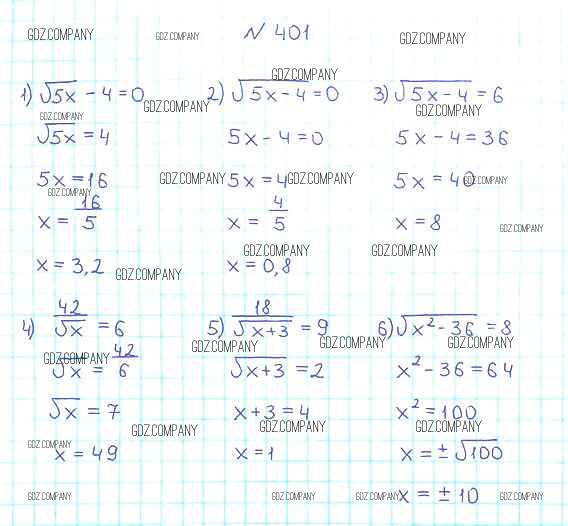 GDZ.COMPANY GDZ.COMPANY № 401 GDZ.COMPANY
GDZ.COMPANY
1) √5x - 4 = 0 2) √5x - 4 = 0 3) √5x - 4 = 6
GDZ.COMPANY GDZ.COMPANY GDZ.COMPANY
√5x = 4 5x - 4 = 0 5x - 4 = 36
5x = 16 GDZ.COMPANY 5x = 4 GDZ.COMPANY 5x = 40 GDZ.COMPANY
GDZ.COMPANY
x = 16/5 x = 4/5 x = 8 GDZ.COMPANY
GDZ.COMPANY GDZ.COMPANY
x = 3,2 GDZ.COMPANY x = 0,8
4) 42/√x = 6 5) 18/√x+3 = 9 6) √x² - 36 = 8
GDZ.COMPANY GDZ.COMPANY GDZ.COMPANY
GDZ.COMPANY
√x = 42/6 √x+3 = 2 x² - 36 = 64
√x = 7 x + 3 = 4 x² = 100
GDZ.COMPANY GDZ.COMPANY GDZ.COMPANY
GDZ.COMPANY
x = 49 x = 1 x = ± √100
GDZ.COMPANY GDZ.COMPANY GDZ.COMPANY x = ± 10 GDZ.COMPANY